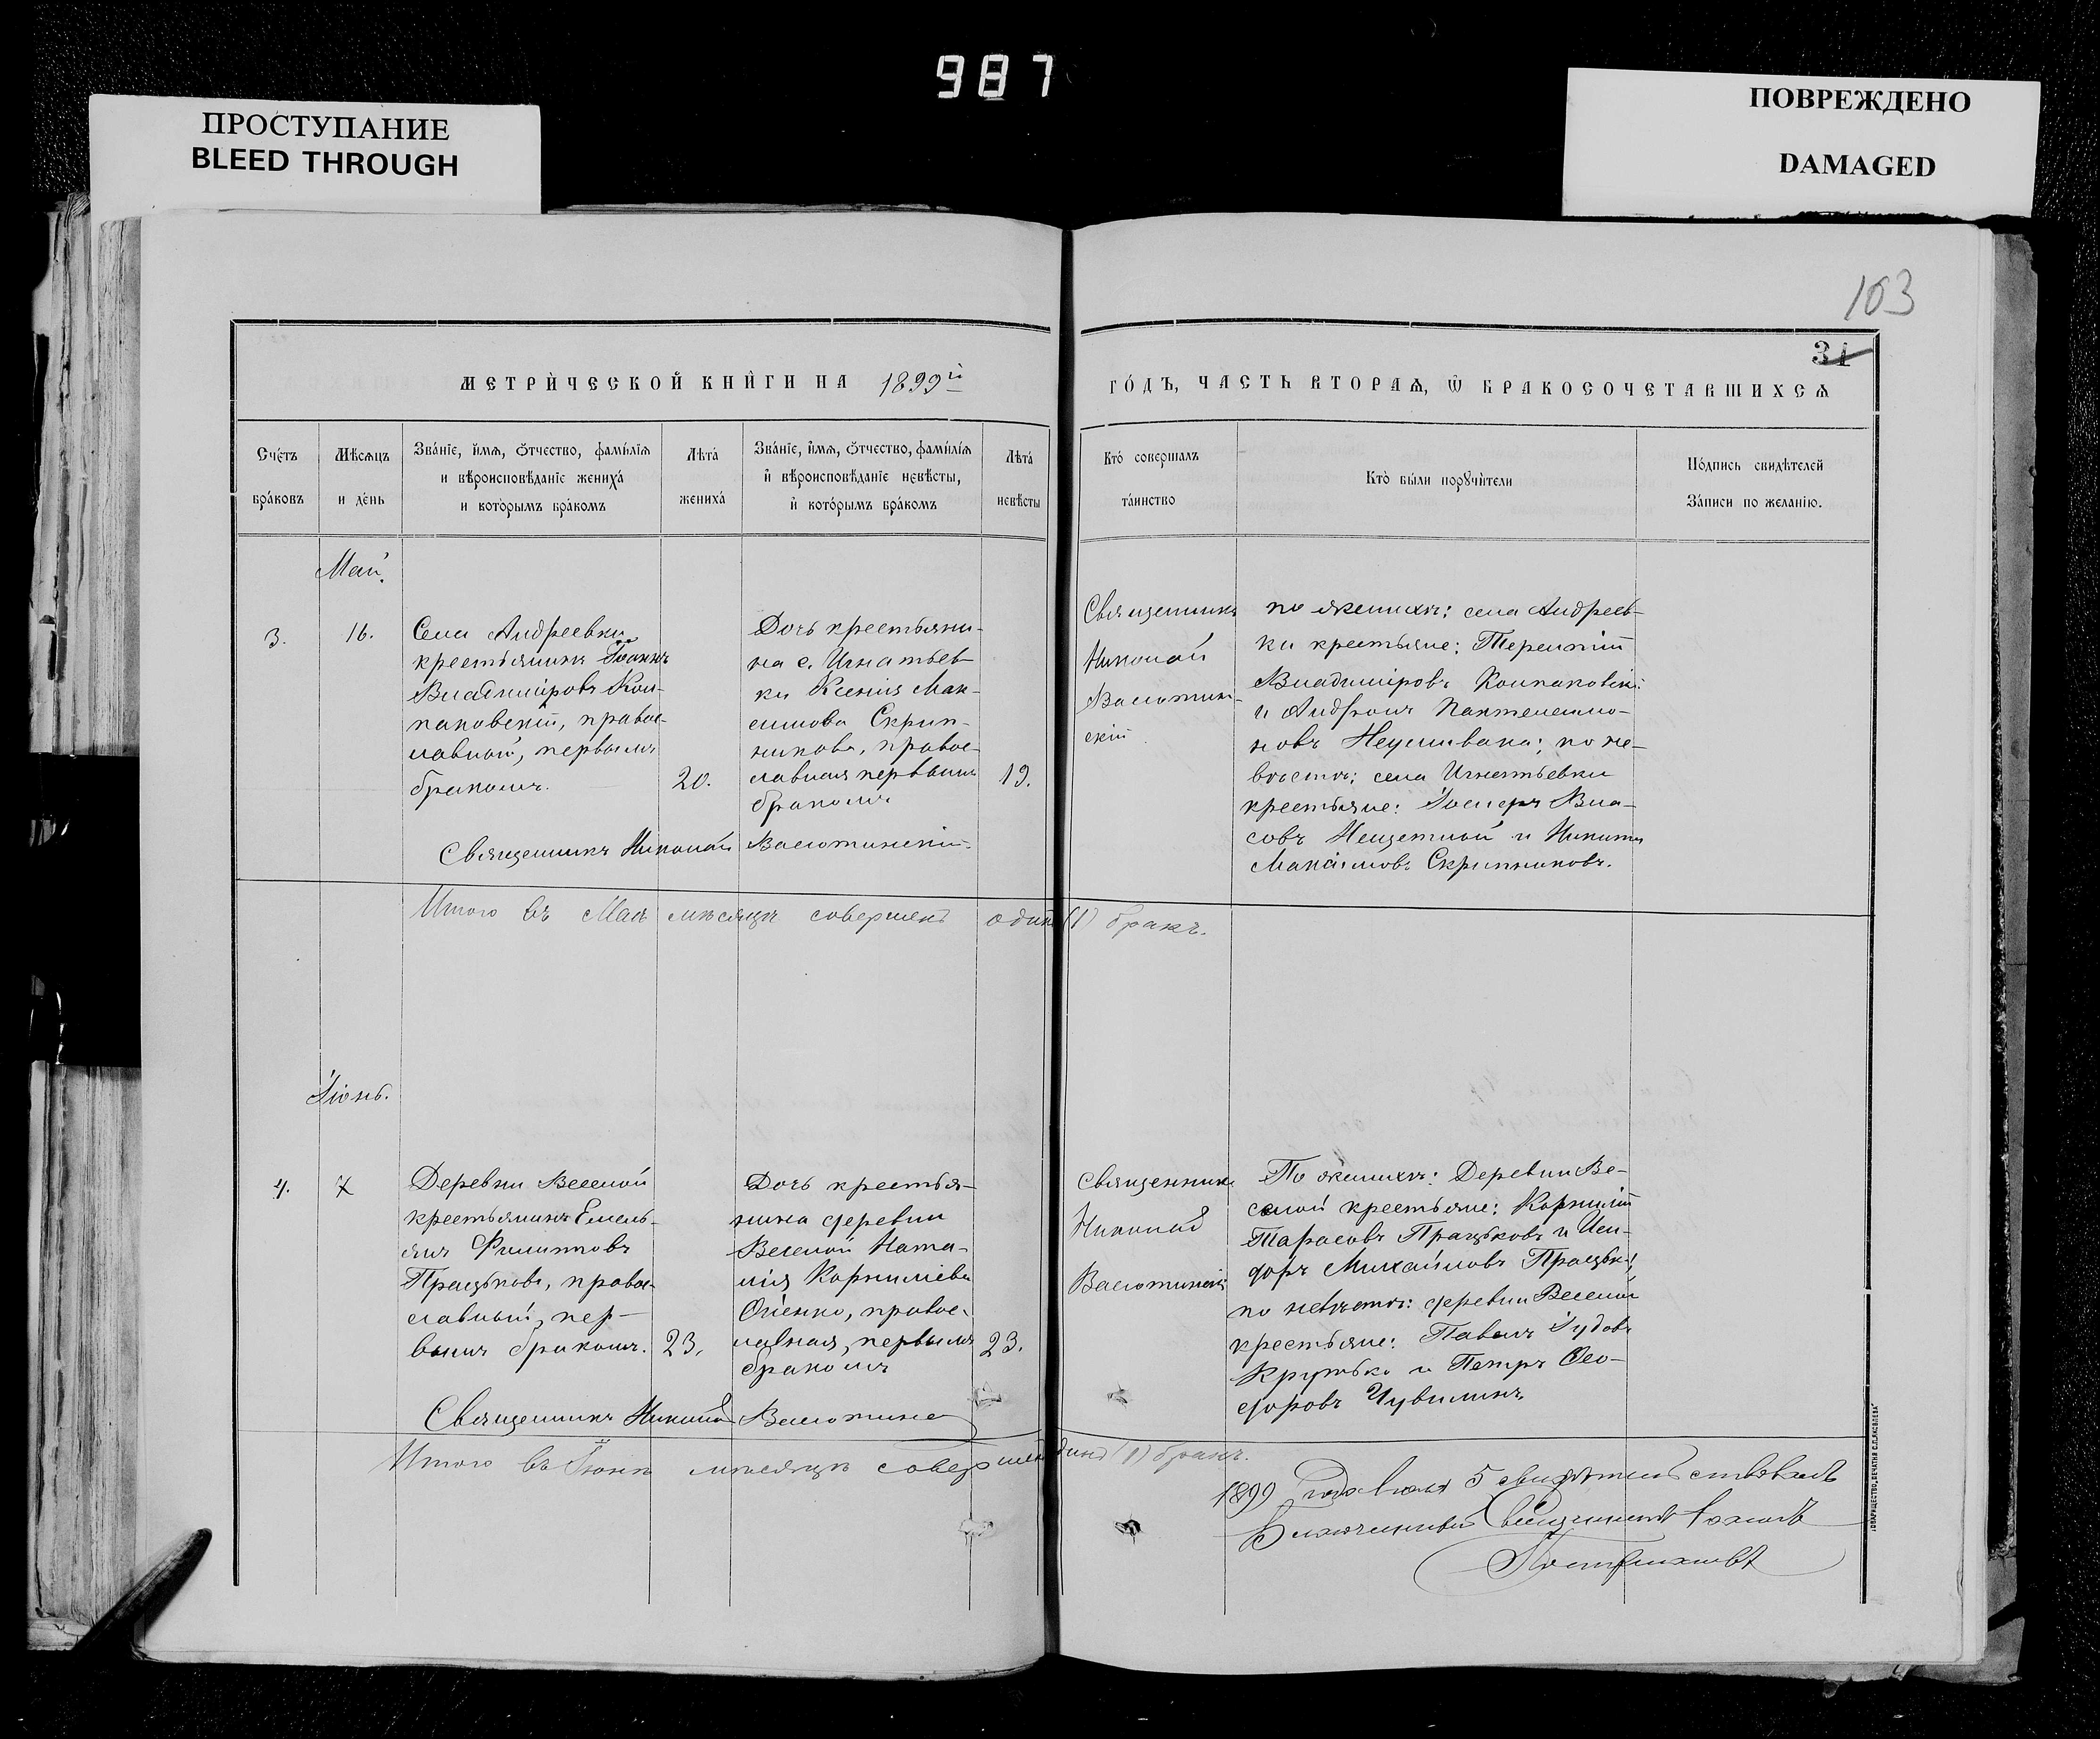 987
ПРОСТУПАНИЕ
BLEED THROUGH
ПОВРЕЖДЕНО
DAMAGED
103
31
МЕТРИЧЕСКОЙ КНИГИ НА 1899й
ГОДЪ, ЧАСТЬ ВТОРАѦ, Ѿ БРАКОСОЧЕТАВШИХСѦ
Счетъ браковъ
Мѣсѧцъ и день
Званіе, имѧ, ѻтчество, фамиліѧ
и вѣроисповѣданіе жениха
и которымъ бракомъ
Лѣта жениха
Званіе, имѧ, ѻтчество, фамиліѧ
и вѣроисповѣданіе невѣсты,
и которымъ бракомъ
Лѣта невѣсты
Кто совершалъ
таинство
Кто были порꙋчители
Подпись свидѣтелей
Записи по желанію.
Май.
3.
16.
Села Андреевки
крестьянинъ Іоаннъ
Владиміровъ Кол-
паковскій, правос-
лавный, первымъ
бракомъ.
20.
Дочь крестьяни-
на с. Игнатьев-
ки Ксенія Мак-
симова Скрип-
никова, правос-
лавная первымъ
бракомъ
19.
Священникъ
Николай
Васютин-
скій
по женихѣ: села Андреев-
ки крестьяне: Терентій
Владиміровъ Колпаковскій
и Андронъ Пантелеимо-
новъ Неумывака; по не-
вѣстѣ: села Игнатьевки
крестьяне: Іосифъ Вла-
совъ Нещетной и Никита
Максимовъ Скрипниковъ.
Священникъ Николай Васютинскій.
Итого въ Маѣ мѣсяцѣ совершенъ одинъ (1) бракъ.
Іюнь.
4.
7
Деревни Веселой
крестьянинъ Емель-
янъ Филипповъ
Працьковъ, правос-
лавный, пер-
вымъ бракомъ.
23.
Дочь крестья-
нина деревни
Веселой Ната-
лія Корниліева
правос-
лавная, первымъ
бракомъ
23.
Священникъ
Николай
Васютинскій
По женихѣ: Деревни Ве-
селой крестьяне: Корнилій
Тарасовъ Працьковъ и Иси-
доръ Михайловъ
по невѣстѣ: деревни Веселой
крестьяне: Павелъ Іудовъ
Крутько и Петръ Ѳео-
доровъ Чувилинъ
Священникъ Николай Васютинск
Итого въ Іюнѣ мѣсяцѣ совершенъ одинъ (1) бракъ.
1899 года Іюля 5 свидѣтельствовалъ
Благочинный Священникъ
ТОВАРИЩЕСТВО „ПЕЧАТНЯ С.П.ЯКОВЛЕВА“